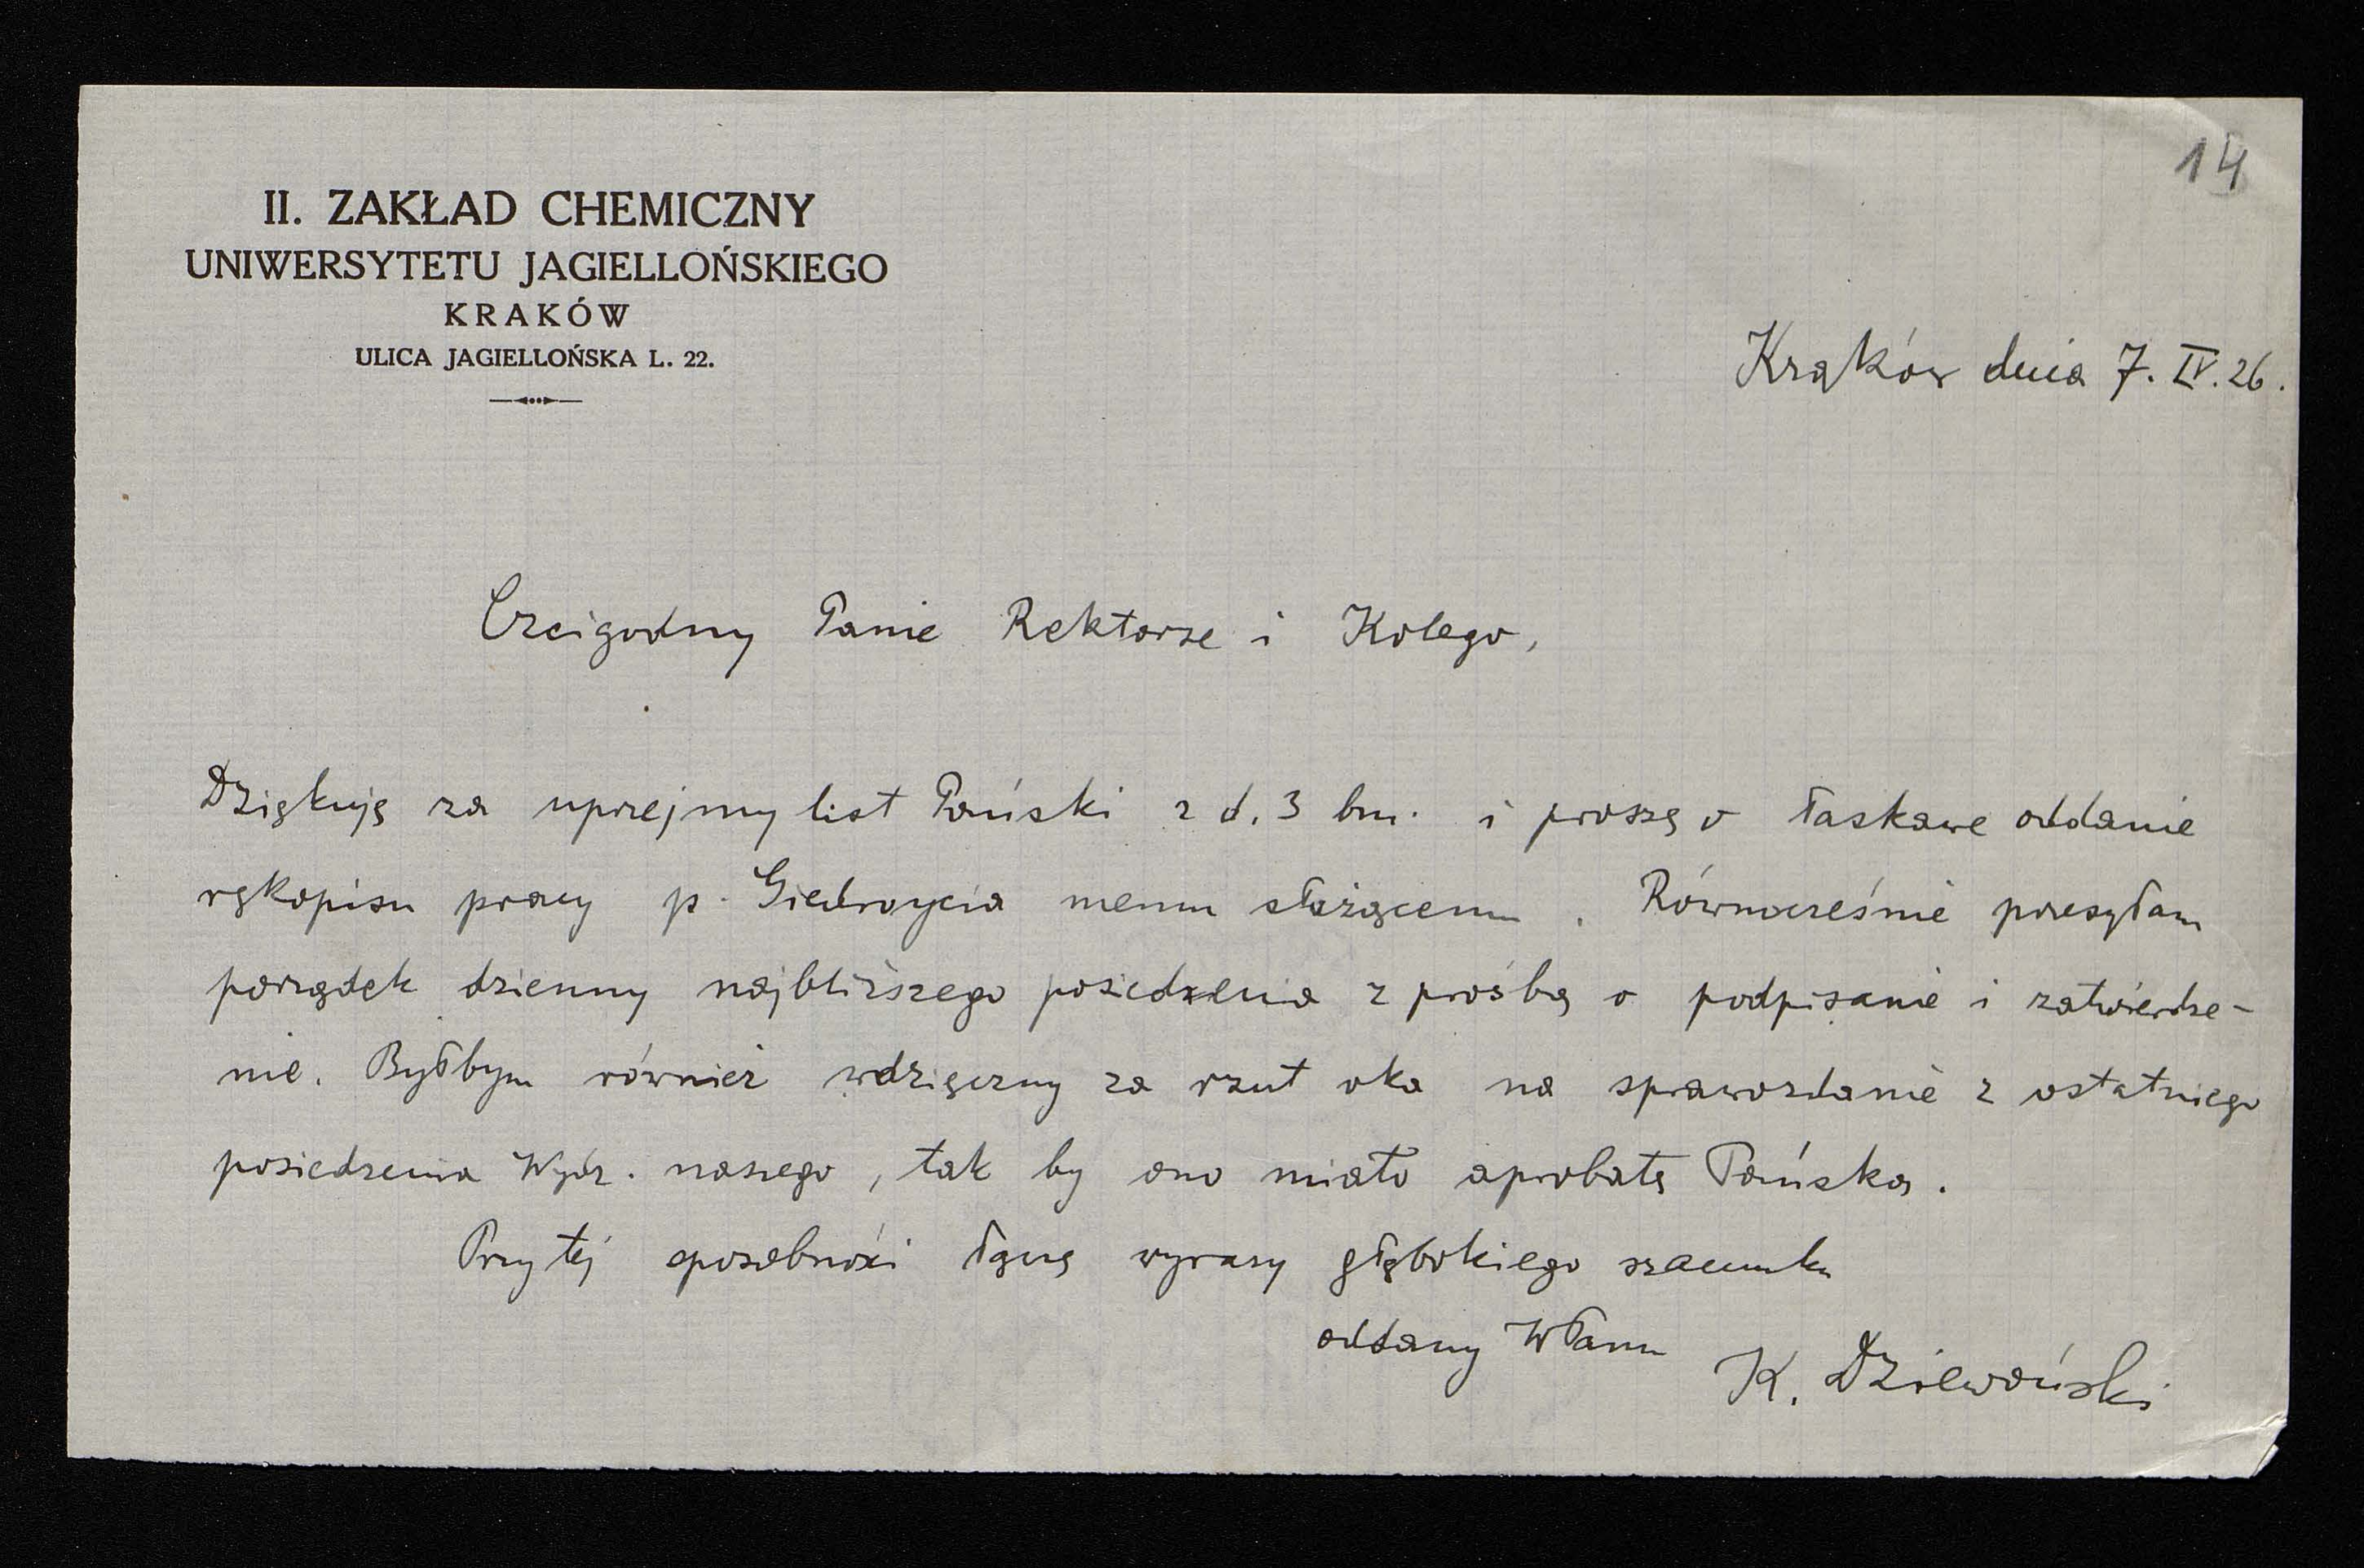 14
II. ZAKŁAD CHEMICZNY
UNIWERSYTETU JAGIELLOŃSKIEGO
KRAKÓW
ULICA JAGIELLOŃSKA L. 22.
Kraków dnia 7. IV. 26.
Czcigodny Panie Rektorze i Kolego,
Dziękuję za uprzejmy list Pański z d. 3 bm. i proszę o łaskawe oddanie
rękopisu pracy p. Giedroycia memu służącemu. Równocześnie przesyłam
porządek dzienny najbliższego posiedzenia z prośbą o podpisanie i zatwierdze-
nie. Byłbym również wdzięczny za rzut oka na sprawozdanie z ostatniego
posiedzenia Wydz. naszego, tak by ono miało aprobatę Pańską.
Przy tej sposobności łączę wyrazy głębokiego szacunku
oddany WPanu K. Dziewoński